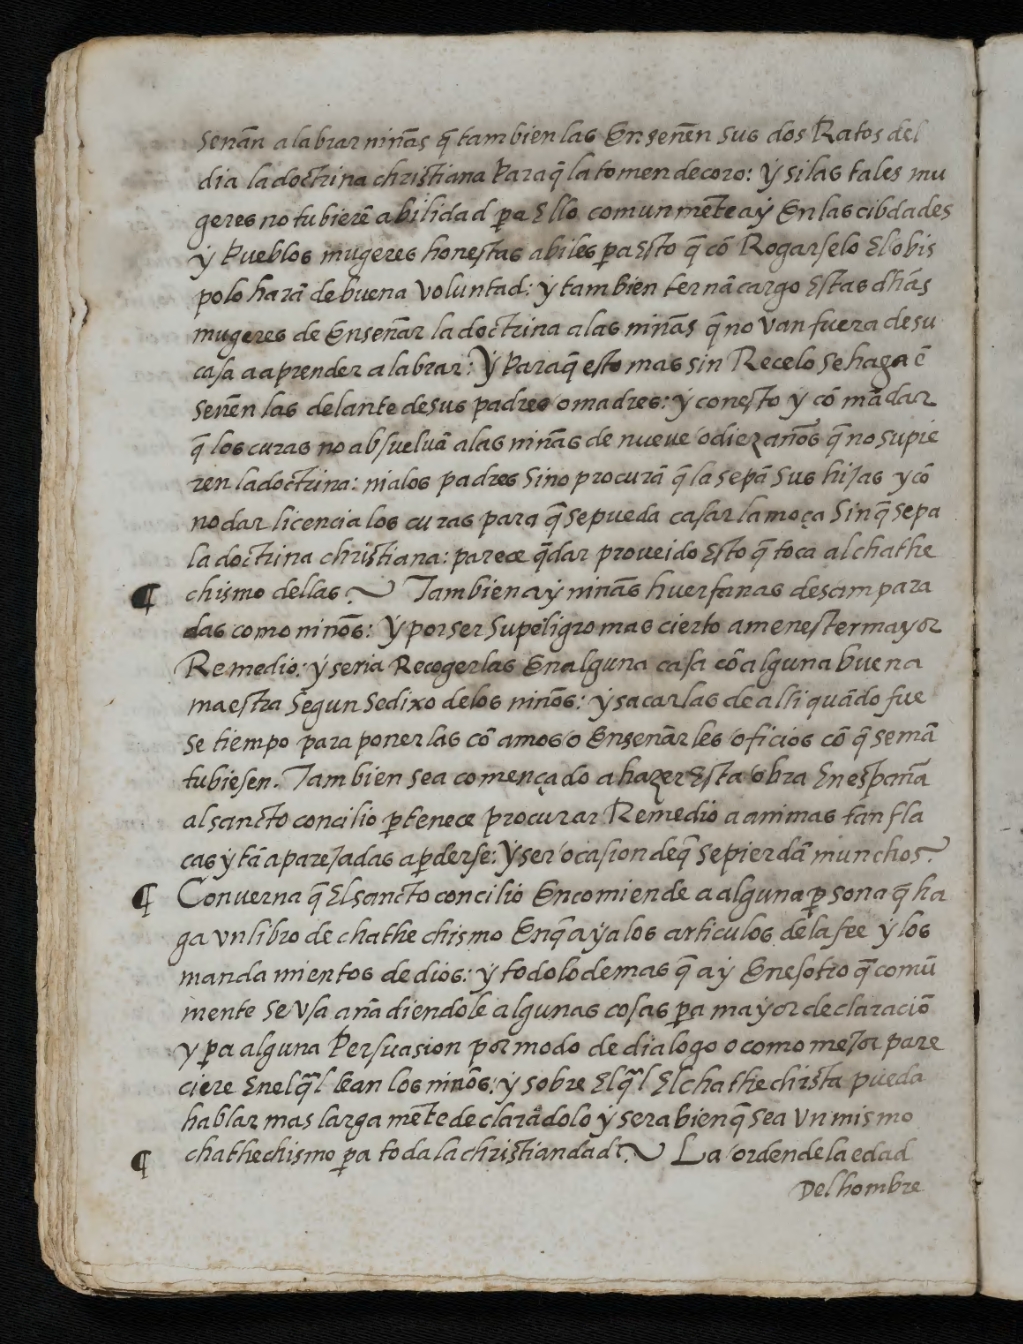 señan a labrar niñas q̃ tambien las Enseñen sus dos Ratos del
dia la doctrina christiana Para q̃ la tomen de coro: ẏ si las tales mu
geres no tubierẽ abilidad p̱a Ello comunmẽte aẏ En las cibdades
ẏ Pueblos mugeres honestas abiles p̱a Esto q̃ cõ Rogarselo El obis
polo harã de buena voluntad: ẏ tambien ternã cargo Estas dh̃as
mugeres de Enseñar la doctrina a las niñas q̃ no van fuera de su
casa a aprender a labrar: Ẏ Para q̃ esto mas sin Recelo se haga ẽ
señen las delante de sus padres o madres: ẏ con esto ẏ cõ mãdar
q̃ los curas no absueluã a las niñas de nueue o diez años q̃ no supie
ren la doctrina: ni a los padres sino procurã q̃ la sepã sus hijas y cõ
no dar licencia los curas para q̃ se pueda casar la moça sin q̃ sepa
la doctrina christiana: parece q̃dar proueido Esto q̃ toca al chathe
¶ chismo dellas ~ Tambien aẏ niñas huerfanas desampara
das como niños: Ẏ por ser su peligro mas cierto a menester mayor
Remedio: ẏ seria Recogerlas En alguna casa cõ alguna buena
maestra Segun se dixo de los niños: ẏ sacarlas de alli quãdo fue
se tiempo para ponerlas cõ amos o Enseñarles oficios cõ q̃ se mã
tubiesen. Tambien sea començado a hazer Esta obra En españa
al sancto concilio p̱tenece procurar Remedio a animas tan fla
cas ẏ tã aparejadas a p̱derse: Ẏ ser ocasion de q̃ se pierdã munchos.
¶ Conuerna q̃ El sancto concilio Encomiende a alguna p̱sona q̃ ha
ga vn libro de chathechismo En q̃ aẏa los articulos de la fee ẏ los
mandamientos de dios: ẏ todo lo demas q̃ aẏ En esotro q̃ comũ
mente se vsa añadiendole algunas cosas p̱a mayor declaraciõ
y p̱a alguna Persuasion por modo de dialogo o como mejor pare
ciere En el q̃l lean los niños: ẏ sobre El q̃l El chathechista pueda
hablar mas largamẽte declarãdolo ẏ sera bien q̃ sea vn mismo
¶ chathechismo p̱a toda la christiandad. ~ La orden de la edad
Del hombre